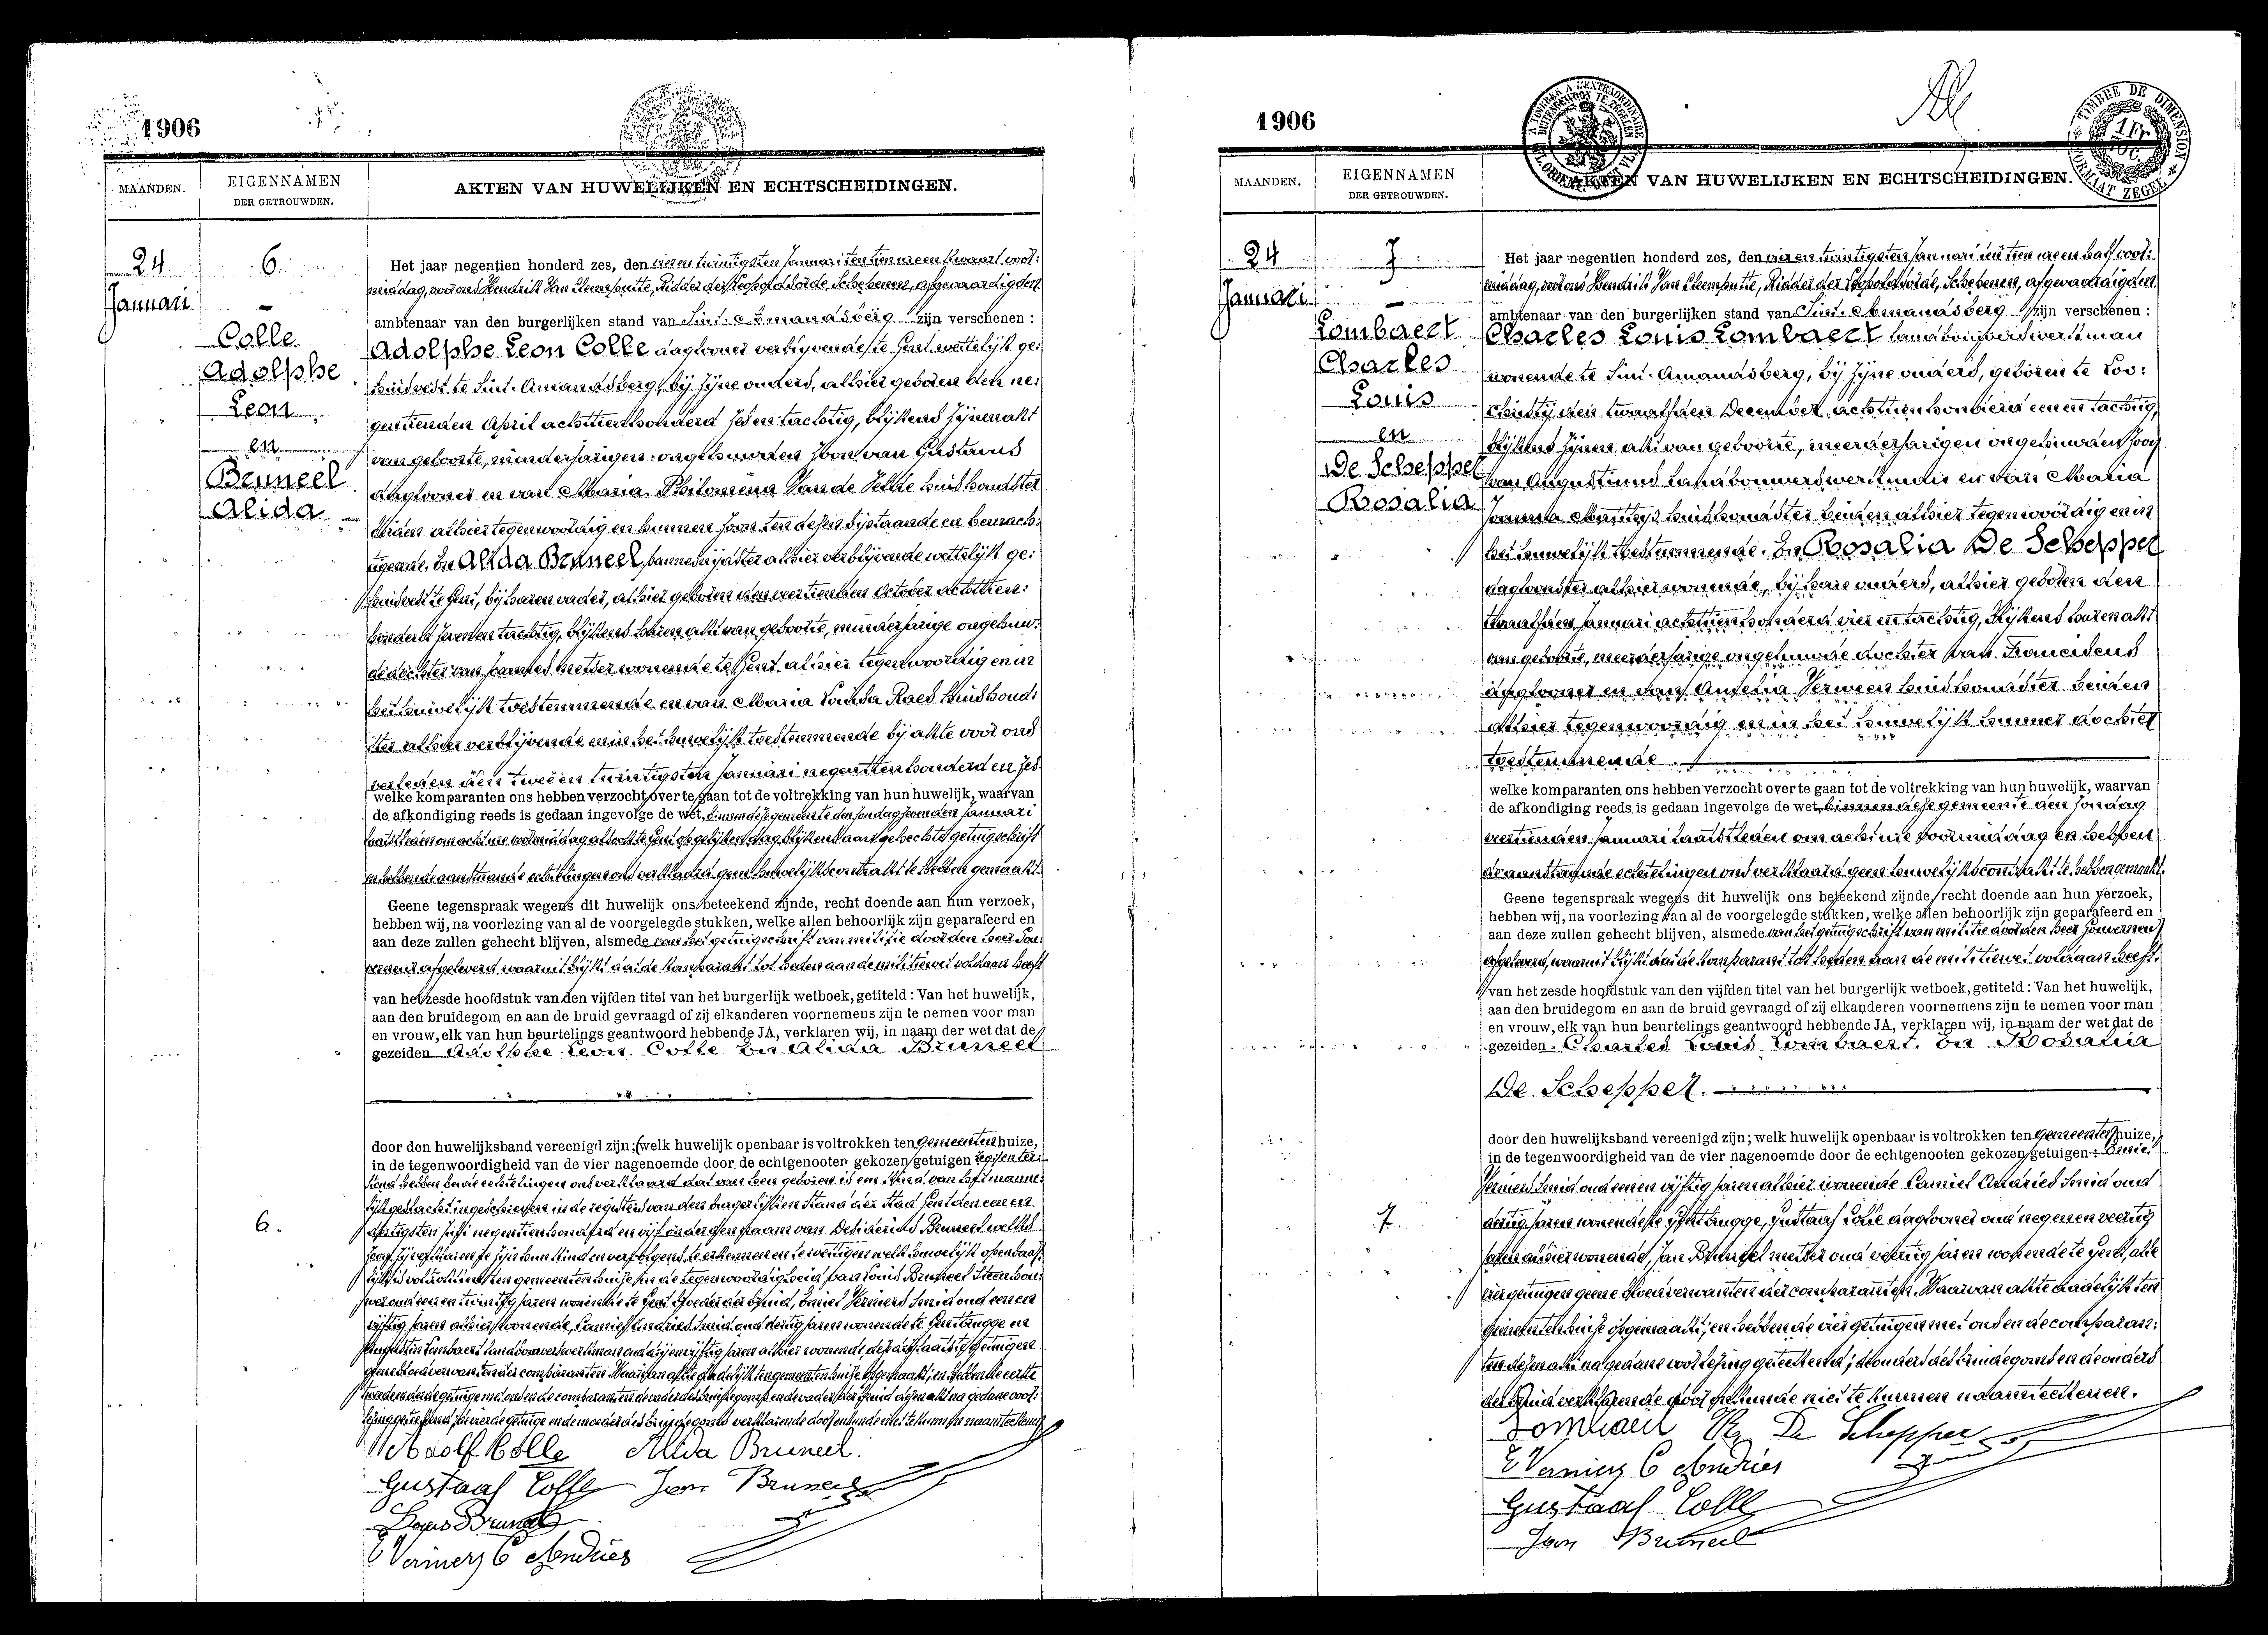 1906
MAANDEN.
EIGENNAMEN
DER GETROUWDEN.
AKTEN VAN HUWELIJKEN EN ECHTSCHEIDINGEN.
24
Januari
6.
Colle
Adolphe
Leon
en
Bruneel
Alida
Het jaar negentien honderd zes, den vier en twintigsten Januari ten tien ure en kwaart voor:
middag, voor ons Hendrik Van Cleemputte, Ridder der Leopold's orde, Schepenen, afgevaardigden
ambtenaar van den burgerlijken stand van Sint-Amandsberg zijn verschenen :
Adolphe Leon Colle dagloner verblyvende te Gent wettelijk ge:
huisvest te Sint-Amandsberg, bij zijne ouders, alhier geboren den ne:
gentienden April achttienhonderd zes en tachtig, blijkens zijnen akt
van geboorte, minderjarigen ongehuwden zoon van Gustavus
dagloner en van Maria Philomena Van de Velde huishoudster
beiden alhier tegenwoordig en hunnen zoon ten dezen bijstaande en bemach:
tigende. En Alida Bruneel, alhier verblijvende wettelijk ge:
huisvest te Gent, bij haren vader, alhier geboren den veertienden October achttien:
honderd zeven en tachtig, blijkens haren akt van geboorte, minderjarige ongehuw:
de dochter van Joannes metser wonende te Gent alhier tegenwoordig en in
het huwelijk toestemmende en van Maria Raes huishoud:
ster alhier verblijvende en in het huwelijk toestemmende bij akte voor ons
verleden den twee en twintigsten Januari negentienhonderd en zes
welke komparanten ons hebben verzocht over te gaan tot de voltrekking van hun huwelijk, waarvan
de afkondiging reeds is gedaan ingevolge de wet, binnen deze gemeente den Zondag zevenden Januari
laatstleden om acht ure voormiddag alsook te Gent op gelijken dag blijkens aangehechte getuigschrift
en hebben de aanstaande echtelingen ons verklaard geen huwelijkscontrakt te hebben gemaakt
Geene tegenspraak wegens dit huwelijk ons beteekend zijnde, recht doende aan hun verzoek,
hebben wij, na voorlezing van al de voorgelegde stukken, welke allen behoorlijk zijn geparafeerd en
aan deze zullen gehecht blijven, alsmede van het getuigschrift van militie door den heer Gou:
verneur afgeleverd, waaruit blijkt dat de komparant tot heden aan de militiewet voldaan heeft
van het zesde hoofdstuk van den vijfden titel van het burgerlijk wetboek, getiteld : Van het huwelijk,
aan den bruidegom en aan de bruid gevraagd of zij elkanderen voornemens zijn te nemen voor man
en vrouw, elk van hun beurtelings geantwoord hebbende JA, verklaren wij, in naam der wet dat de
gezeiden Adolphe Leon Colle en Alida Bruneel
door den huwelijksband vereenigd zijn; (welk huwelijk openbaar is voltrokken ten gemeentenhuize,
in de tegenwoordigheid van de vier nagenoemde door de echtgenooten gekozen getuigen
hebben beide echtelingen ons verklaard dat van hen geboren is een kind van het manne:
lijk geslacht ingeschreven in de registers van den burgerlijken stand der stad Gent den een en
dertigsten Juli negentienhonderd en vijf onder den naam van Desiderius Bruneel welke
6.
lijk is voltrokken ten gemeentenhuise in de tegenwoordigheid van Louis Bruneel Steenhou:
wer oud een en twintig jaren wonende te Gent broeder der bruid, Emiel Verniers smid oud een en
vijftig jaren alhier wonende, Camiel Andries smid oud dertig jaren wonende te Gentbrugge en
Augustin Lombaert landbouwerswerkman oud drij en vijftig jaren alhier wonende, de drij laatste getuigen
geene bloedverwanten der comparanten. Waarvan akte dadelijk ten gemeentenhuise opgemaakt; en hebben de eerste
Adolf Colle Alida Bruneel.
Gustaaf Colle Jan Bruneel
Louis Bruneel
E Verniers C Andries
1906
MAANDEN.
EIGENNAMEN
DER GETROUWDEN.
AKTEN VAN HUWELIJKEN EN ECHTSCHEIDINGEN.
A TIMBRER A L'EXTRAORDINAIRE
TIMBRE DE DIMENSION
FORMAAT ZEGEL
24
Januari
7
Lombaert
Charles
Louis
en
De Schepper
Rosalia
Het jaar negentien honderd zes, den vier en twintigsten Januari ten tien ure en half voor:
middag, voor ons Hendrik Van Cleemputte, Ridder der Leopoldsorde, Schepenen, afgevaardigden
ambtenaar van den burgerlijken stand van Sint-Amandsberg zijn verschenen :
Charles Louis Lombaert landbouwerswerkman
wonende te Sint-Amandsberg, bij zijne ouders, geboren te Loo:
christij den twaalfden December achttienhonderd een en tachtig,
blijkens zijnen akt van geboorte, meerderjarigen ongehuwden zoon
van Augustinus landbouwerswerkman en van Maria
Joanna Matthys huishoudster beiden alhier tegenwoordig en in
het huwelijk toestemmende. En Rosalia De Schepper
daglooster alhier wonende, bij hare ouders, alhier geboren den
twaalfden Januari achttienhonderd vier en tachtig, blijkens haren akt
van geboorte, meerderjarige ongehuwde dochter van Franciscus
dagloner en van Amelia Verween huishoudster beiden
alhier tegenwoordig en in het huwelijk hunner dochter
toestemmende.
welke komparanten ons hebben verzocht over te gaan tot de voltrekking van hun huwelijk, waarvan
de afkondiging reeds is gedaan ingevolge de wet, binnen deze gemeente den Zondag
veertienden Januari laatstleden om acht ure voormiddag en hebben
de aanstaande echtelingen ons verklaard geen huwelijkscontrakt te hebben gemaakt.
Geene tegenspraak wegens dit huwelijk ons beteekend zijnde, recht doende aan hun verzoek,
hebben wij, na voorlezing van al de voorgelegde stukken, welke allen behoorlijk zijn geparafeerd en
aan deze zullen gehecht blijven, alsmede van het getuigschrift van militie door den heer Gouverneur
afgeleverd, waaruit blijkt dat de komparant tot heden aan de militiewet voldaan heeft.
van het zesde hoofdstuk van den vijfden titel van het burgerlijk wetboek, getiteld : Van het huwelijk,
aan den bruidegom en aan de bruid gevraagd of zij elkanderen voornemens zijn te nemen voor man
en vrouw, elk van hun beurtelings geantwoord hebbende JA, verklaren wij, in naam der wet dat de
gezeiden Charles Louis Lombaert en Rosalia
De Schepper.
door den huwelijksband vereenigd zijn; welk huwelijk openbaar is voltrokken ten gemeentenhuize,
in de tegenwoordigheid van de vier nagenoemde door de echtgenooten gekozen getuigen: Emiel
Verniers smid oud een en vijftig jaren alhier wonende Camiel Andries smid oud
dertig jaren wonende te Gentbrugge, Gustaaf Colle dagloner oud negen en veertig
7.
jaren alhier wonende, Jan Bruneel metser oud veertig jaren wonende te Gent, alle
vier getuigen geene bloedverwanten der comparanten. Waarvan akte dadelijk ten
gemeentenhuise opgemaakt; en hebben de vier getuigen met ons en de comparan:
ten dezen akt na gedane voorlezing geteekend; de ouders des bruidegoms en de ouders
der bruid verklarende door onkunde niet te kunnen naamteekenen.
Lombaert De Schepper
E Verniers C Andries
Gustaaf Colle
Jan Bruneel